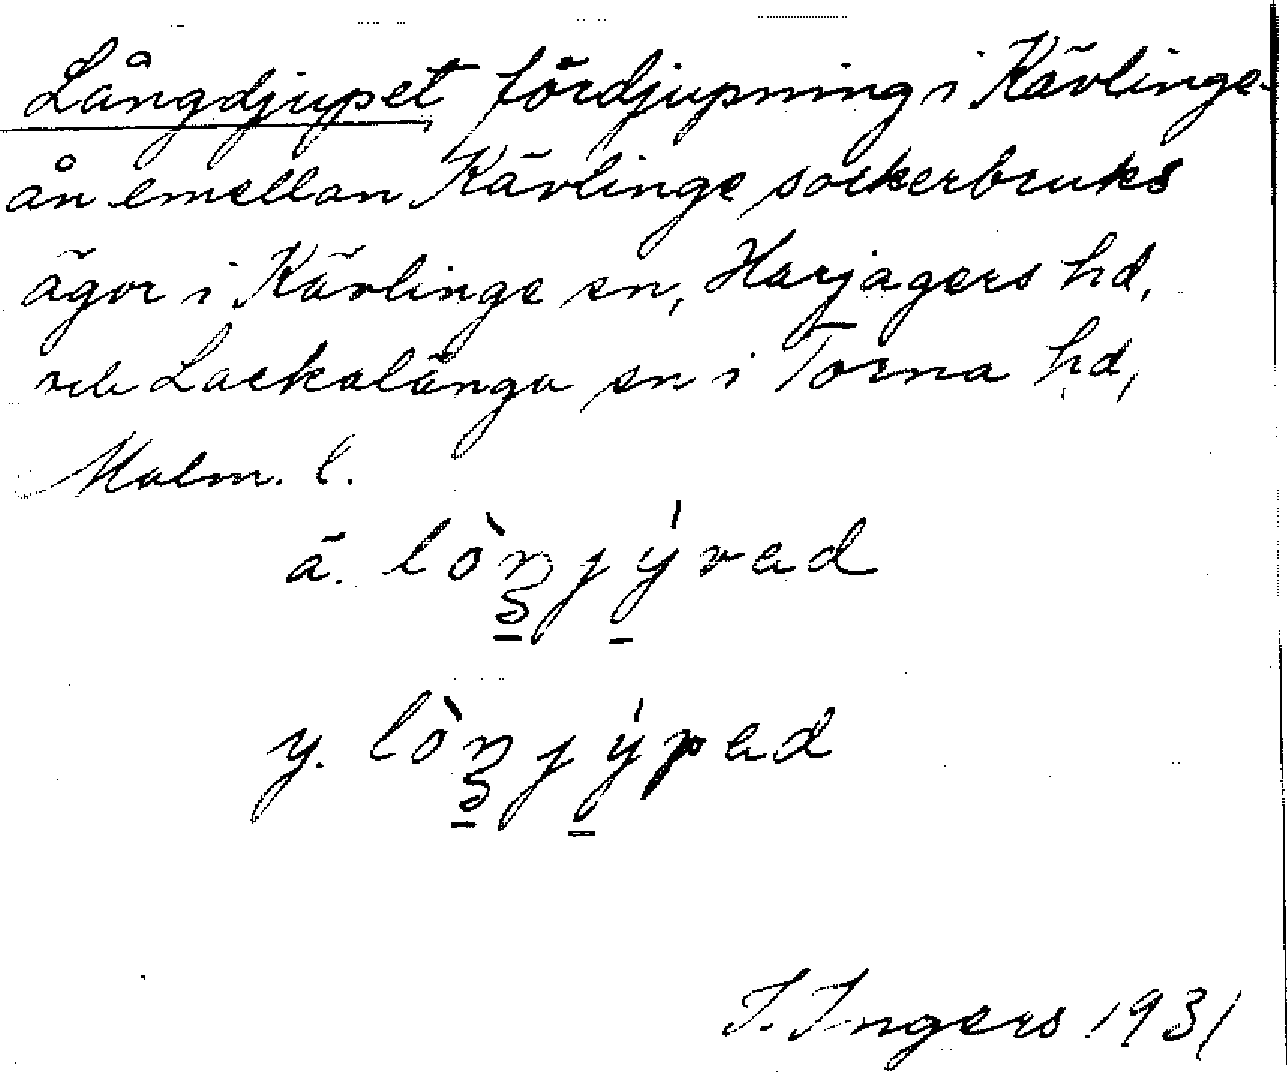 Långdjupet, fördjupning i Kävlinge-
ån emellan Kävlinge sockerbruks
ägor i Kävlinge sn, Harjagers hd,
och Lackalänga sn i Torna hd,
Malm. l.
ä. lòŋjývad
y. lòŋjýpad
I. Ingers 1931